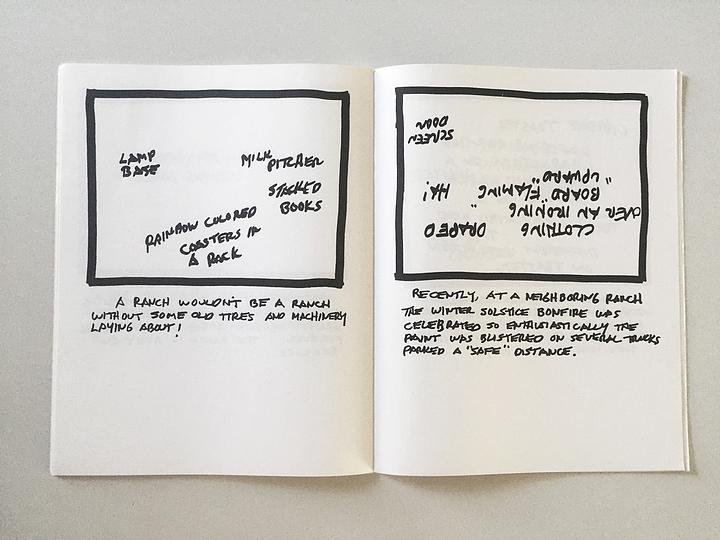 LAMP
BASE
MILK
PITCHER
STACKED
BOOKS
RAINBOW COLORED
COASTERS IN
A RACK
A RANCH WOULDN'T BE A RANCH
WITHOUT SOME OLD TIRES AND MACHINERY
LAYING ABOUT!
CLOTHING DRAPED
OVER AN IRONING
BOARD "FLAMING HA!
UPWARD"
SCREEN
DOOR
RECENTLY, AT A NEIGHBORING RANCH
THE WINTER SOLSTICE BONFIRE WAS
CELEBRATED SO ENTHUSIASTICALLY THE
PAINT WAS BLISTERED ON SEVERAL TRUCKS
PARKED A "SAFE" DISTANCE.